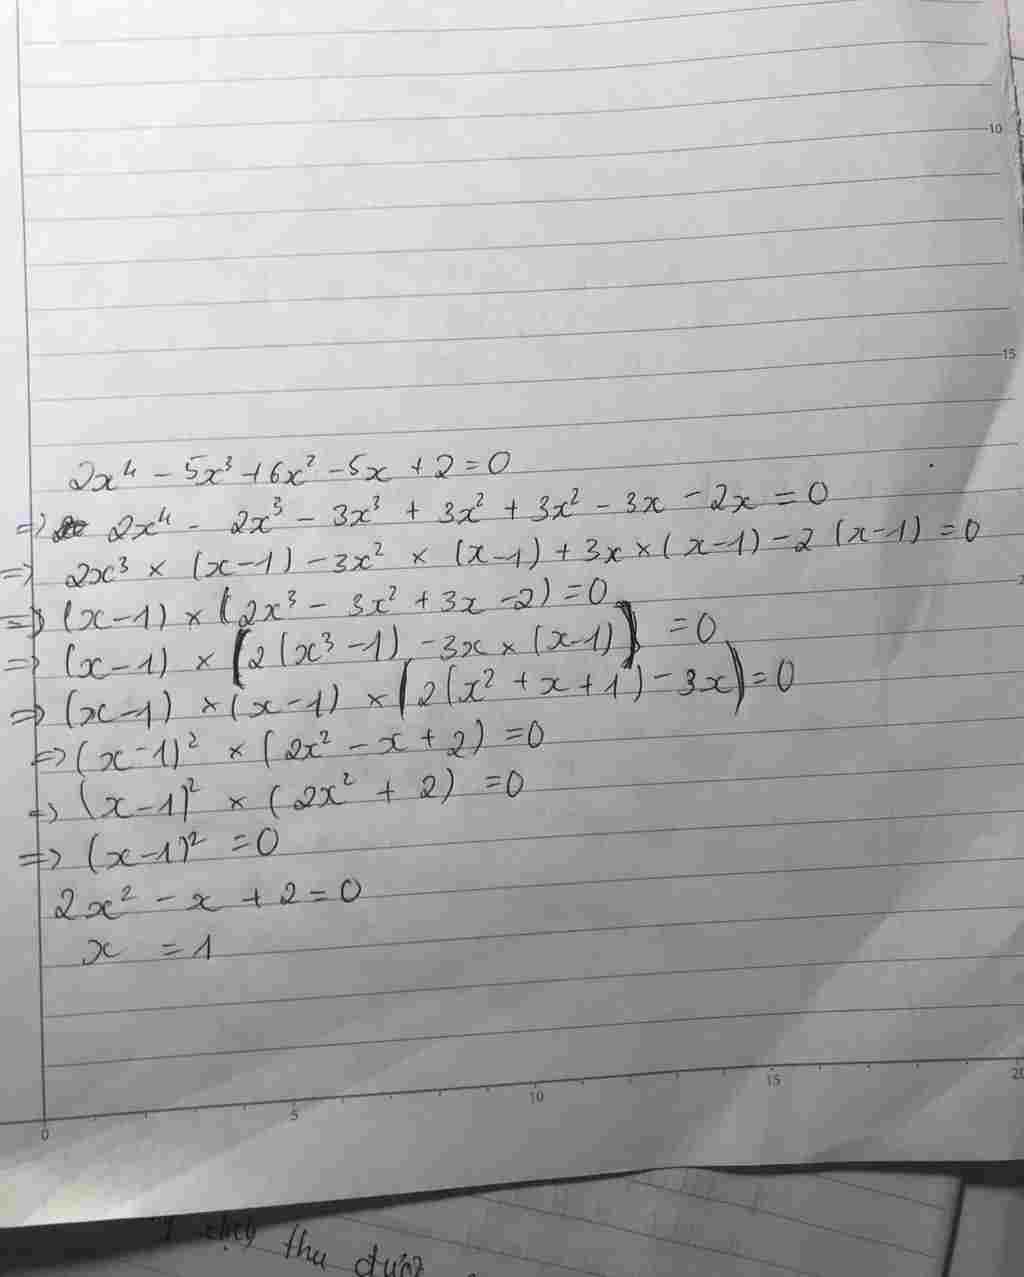 10
15
2x⁴ - 5x³ + 6x² - 5x + 2 = 0
=> 2x⁴ - 2x³ - 3x³ + 3x² + 3x² - 3x - 2x = 0
=> 2x³ × (x-1) - 3x² × (x-1) + 3x × (x-1) - 2 (x-1) = 0
=> (x-1) × (2x³ - 3x² + 3x - 2) = 0
=> (x-1) × (2(x³-1) - 3x × (x-1)) = 0
=> (x-1) × (x-1) × (2(x² + x + 1) - 3x) = 0
=> (x-1)² × (2x² - x + 2) = 0
=> (x-1)² × (2x² + 2) = 0
=> (x-1)² = 0
2x² - x + 2 = 0
x = 1
0 5 10 15 20
thu được